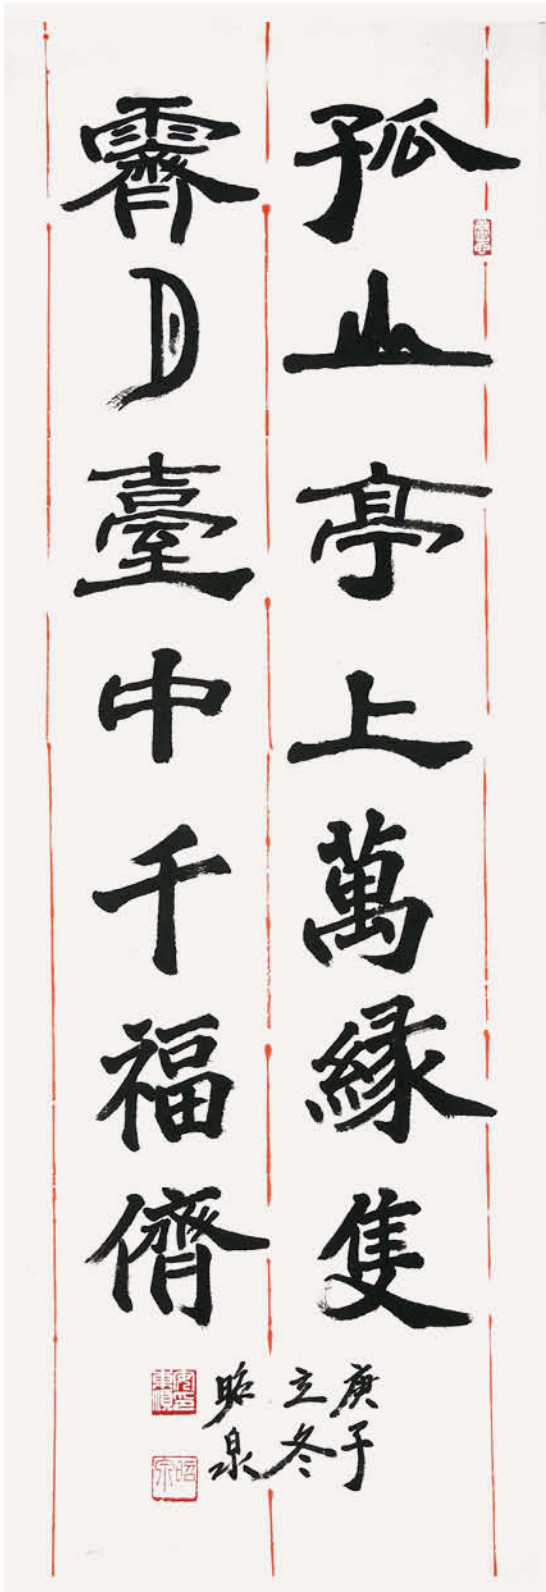 孤山亭上萬緣隻
霽月臺中千福儕
庚子
立冬
昭泉